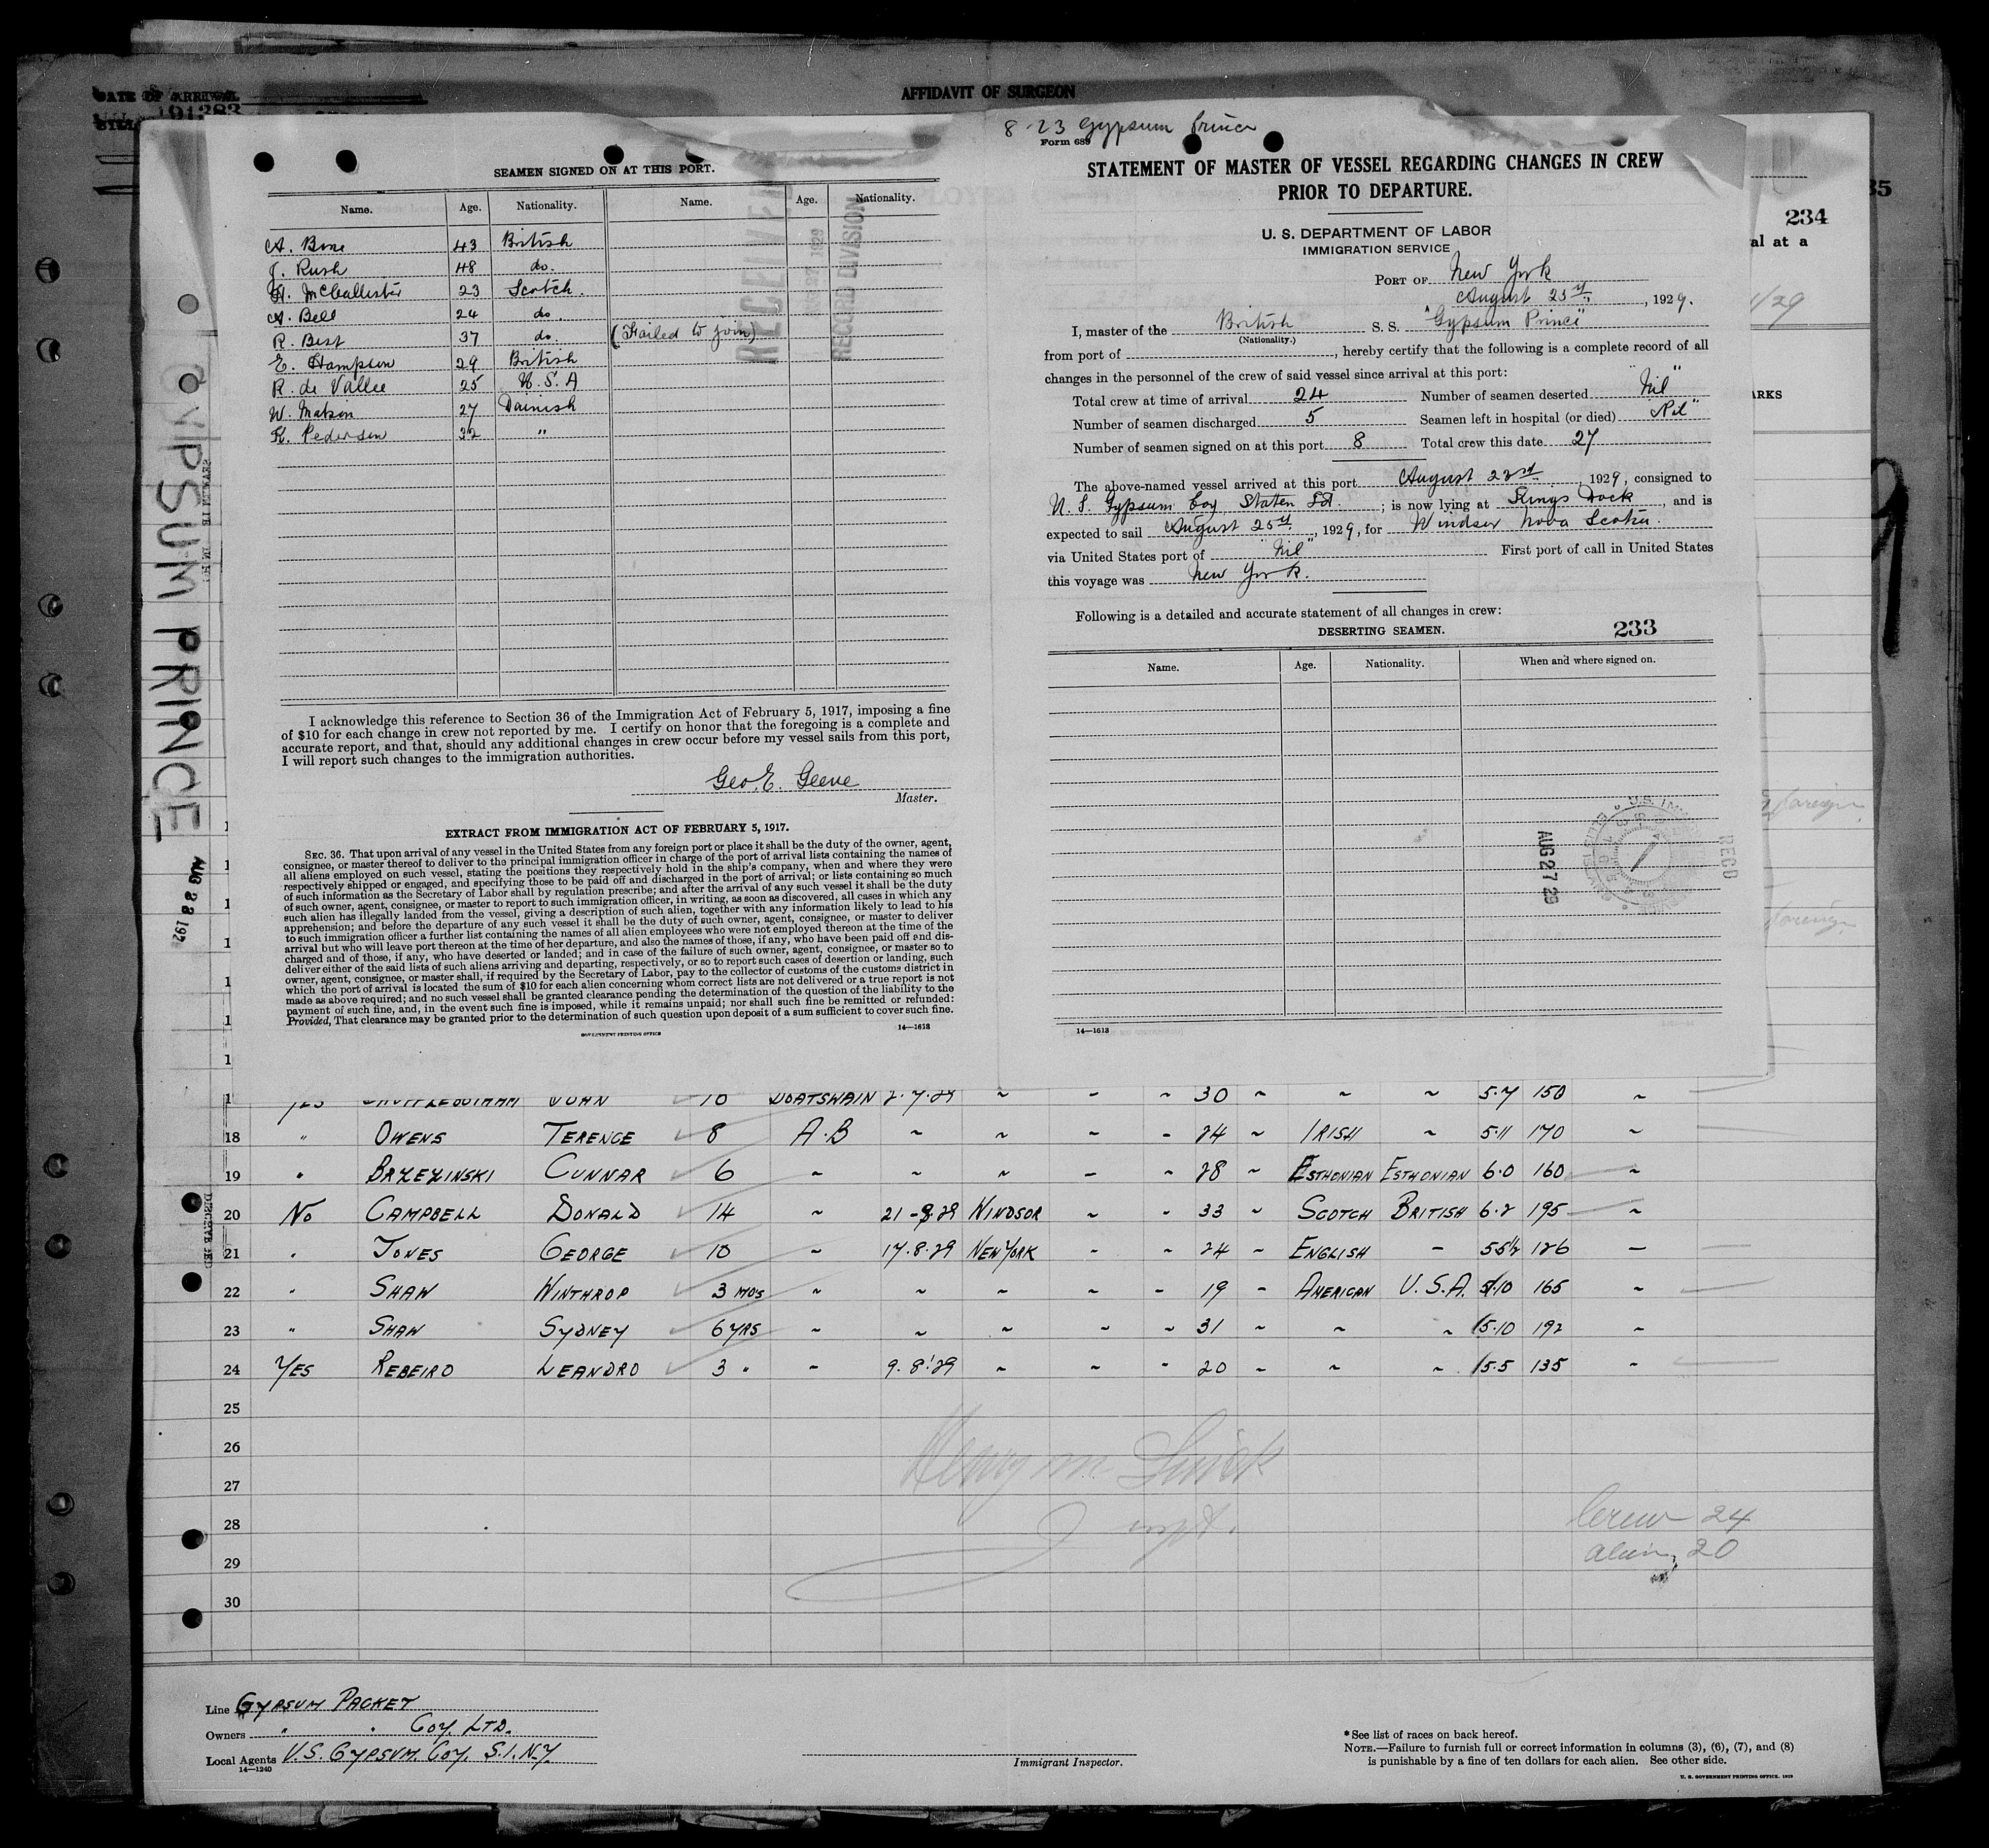 DATE OF ARRIVAL
AFFIDAVIT OF SURGEON
234
al at a
ARKS
GYPSUM PRINCE
SEAMEN SIGNED ON AT THIS PORT.
Name. Age. Nationality. Name. Age. Nationality.
A. Bone 43 British
J. Rush 48 do.
A. McCallister 23 Scotch.
A. Bell 24 do.
R. Best 37 do (Failed to join)
E. Hampson 29 British
R. de Vallee 25 U.S.A
W. Matson 27 Dainish
K. Pedersen 32 "
RECEIVED
RECORD DIVISION
I acknowledge this reference to Section 36 of the Immigration Act of February 5, 1917, imposing a fine
of $10 for each change in crew not reported by me. I certify on honor that the foregoing is a complete and
accurate report, and that, should any additional changes in crew occur before my vessel sails from this port,
I will report such changes to the immigration authorities.
Geo. E. Geeve
Master.
EXTRACT FROM IMMIGRATION ACT OF FEBRUARY 5, 1917.
SEC. 36. That upon arrival of any vessel in the United States from any foreign port or place it shall be the duty of the owner, agent,
consignee, or master thereof to deliver to the principal immigration officer in charge of the port of arrival lists containing the names of
all aliens employed on such vessel, stating the positions they respectively hold in the ship's company, when and where they were
respectively shipped or engaged, and specifying those to be paid off and discharged in the port of arrival; or lists containing so much
of such information as the Secretary of Labor shall by regulation prescribe; and after the arrival of any such vessel it shall be the duty
of such owner, agent, consignee, or master to report to such immigration officer, in writing, as soon as discovered, all cases in which any
such alien has illegally landed from the vessel, giving a description of such alien, together with any information likely to lead to his
apprehension; and before the departure of any such vessel it shall be the duty of such owner, agent, consignee, or master to deliver
to such immigration officer a further list containing the names of all alien employees who were not employed thereon at the time of the
arrival but who will leave port thereon at the time of her departure, and also the names of those, if any, who have been paid off and dis-
charged and of those, if any, who have deserted or landed; and in case of the failure of such owner, agent, consignee, or master so to
deliver either of the said lists of such aliens arriving and departing, respectively, or so to report such cases of desertion or landing, such
owner, agent, consignee, or master shall, if required by the Secretary of Labor, pay to the collector of customs of the customs district in
which the port of arrival is located the sum of $10 for each alien concerning whom correct lists are not delivered or a true report is not
made as above required; and no such vessel shall be granted clearance pending the determination of the question of the liability to the
payment of such fine, and, in the event such fine is imposed, while it remains unpaid; nor shall such fine be remitted or refunded:
Provided, That clearance may be granted prior to the determination of such question upon deposit of a sum sufficient to cover such fine.
GOVERNMENT PRINTING OFFICE 14—1613
8-23 Gypsum Prince
Form 689
STATEMENT OF MASTER OF VESSEL REGARDING CHANGES IN CREW
PRIOR TO DEPARTURE.
U. S. DEPARTMENT OF LABOR
IMMIGRATION SERVICE
PORT OF New York
August 25th, 1929.
I, master of the British S. S. "Gypsum Prince"
(Nationality.)
from port of , hereby certify that the following is a complete record of all
changes in the personnel of the crew of said vessel since arrival at this port:
Total crew at time of arrival 24 Number of seamen deserted "Nil"
Number of seamen discharged 5 Seamen left in hospital (or died) Nil"
Number of seamen signed on at this port 8 Total crew this date 27
The above-named vessel arrived at this port August 23rd, 1929, consigned to
U. S. Gypsum Coy Staten Id. ; is now lying at Kings Dock, and is
expected to sail August 25th, 1929, for Windsor Nova Scotia.
via United States port of "Nil" First port of call in United States
this voyage was New York.
Following is a detailed and accurate statement of all changes in crew:
DESERTING SEAMEN. 233
Name. Age. Nationality. When and where signed on.
AUG 27 29
RECD
14—1613
foreign
foreign
JOHN 10 BOATSWAIN 2.7.29 ~ - ~ 30 ~ ~ ~ 5.7 150 ~
18 " OWENS TERENCE 8 A.B ~ ~ - - 24 ~ IRISH ~ 5.11 170 ~
19 " BRZEZINSKI GUNNAR 6 ~ ~ ~ - ~ 28 ~ ESTHONIAN ESTHONIAN 6.0 160 ~
20 NO CAMPBELL DONALD 14 ~ 21-8-29 WINDSOR ~ - 33 ~ SCOTCH BRITISH 6.2 195 ~
21 " JONES GEORGE 10 ~ 17.8.29 NEW YORK - ~ 24 ~ ENGLISH - 5 5½ 126 -
22 " SHAW WINTHROP 3 MOS ~ ~ ~ ~ - 19 - AMERICAN U.S.A. 5.10 165 ~
23 " SHAW SYDNEY 6 YRS ~ ~ ~ ~ ~ 31 ~ ~ ~ 5.10 192 ~
24 YES REBEIRO LEANDRO 3 " - 9.8.29 ~ ~ - 20 ~ ~ ~ 5.5 135 ~
25
26
27
28
29
30
Henry M.
Inspt.
Crew 24
alien 20
Line GYPSUM PACKET
Owners " " COY. LTD.
Local Agents U.S. GYPSUM. COY. S.I. N.Y.
14—1240
Immigrant Inspector.
*See list of races on back hereof.
NOTE.—Failure to furnish full or correct information in columns (3), (6), (7), and (8)
is punishable by a fine of ten dollars for each alien. See other side.